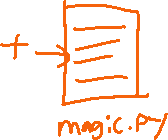 +
magic.py